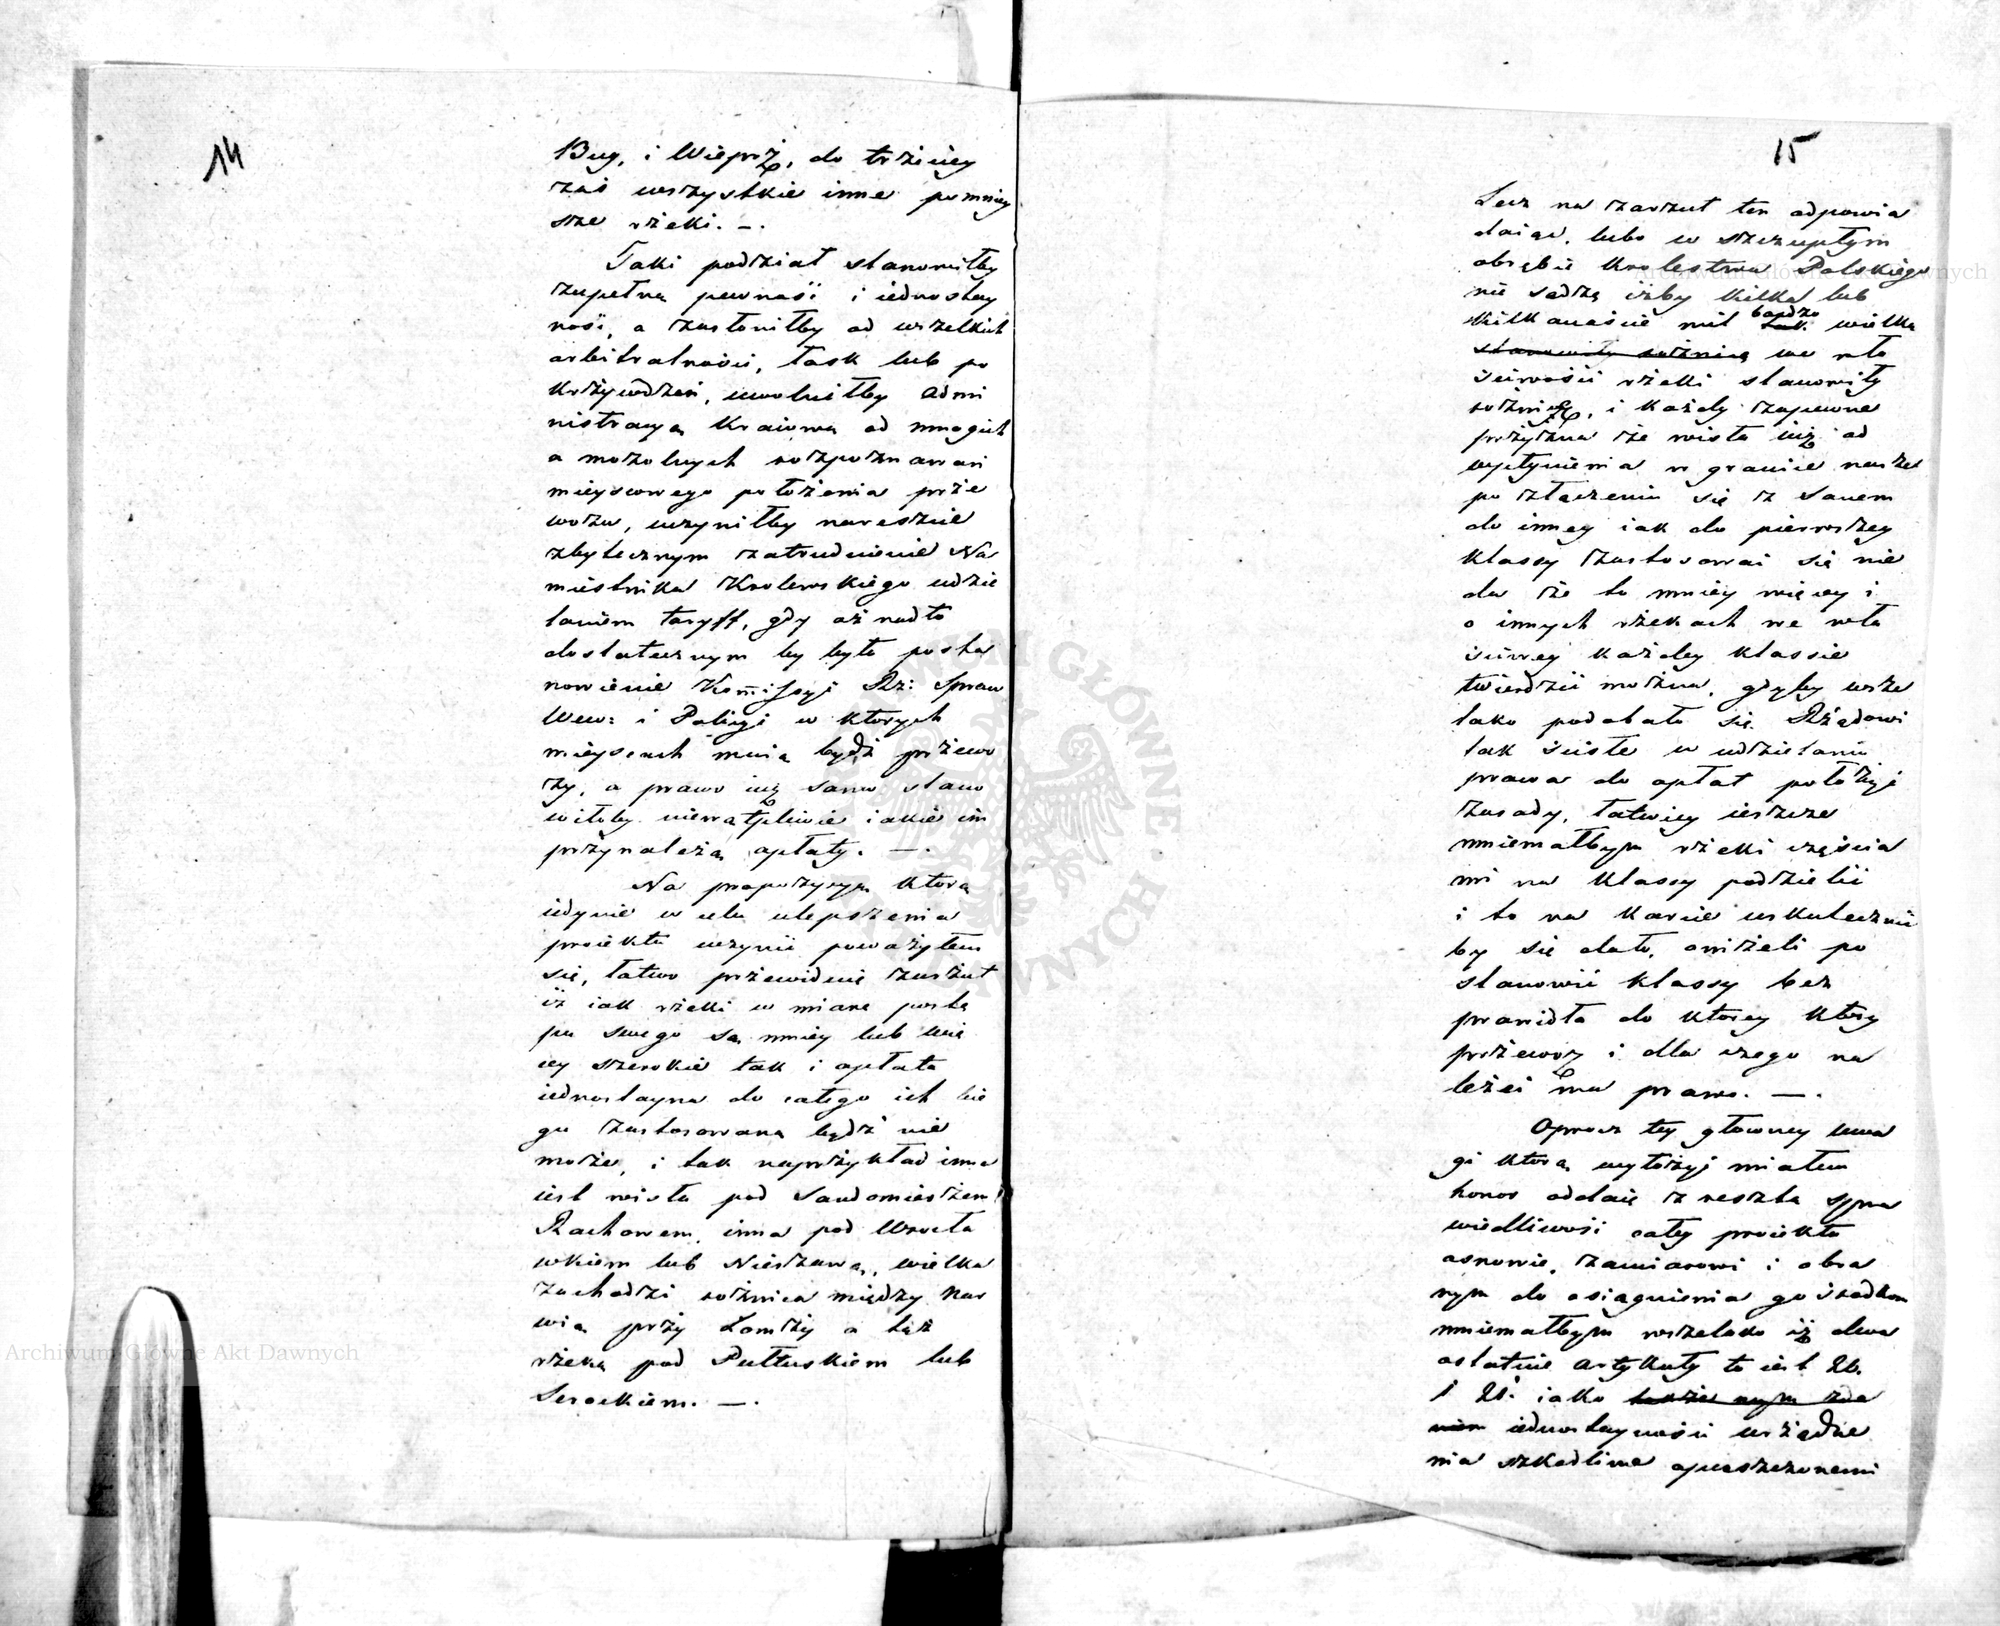 14
Bug, i Wieprż, do trżeciey
zaś wszystkie inne pomniey
sze rżeki. —.
Taki podział stanowiłby
zupełną pewność i iednostay
ność, a zasłoniłby od wszelkich
arbitralności, łask lub po
krżywdzeń, uwolniłby admi
nistracyą kraiową od mnogich
a mozolnych rozpoznawań
mieyscowego położenia prże
wozu, uczyniłby nareszcie
zbytecznym zatrudnienie Na
miestnika Krolewskiego udzie
laniem taryff, gdy aż nadto
dostatecznym by było posta
nowienie Kommissyi Rż: Spraw
Wew: i Policyi w ktorych
mieyscach maią bydź prżewo
zy, a prawo iuż samo stano
wiłoby niewątpliwie iakie im
prżynależą opłaty. —.
Na propozycyą ktorą
iedynie w celu ulepszenia
proiektu uczynić poważyłem
się, łatwo prżewiduię zarżut
iż iak rżeki w miarę postę
pu swego są mniey lub wię
cey szerokie tak i opłata
iednostayna do całego ich bie
gu zastosowaną bydź nie
może, i tak naprżykład inna
iest Wisła pod Sandomierzem
Rachowem, inna pod Wrocła
wkiem lub Nieszawą, wielka
zachodzi rożnica między Nar
wią prży Łomży a tąż
rżeką pod Pułtuskiem lub
Serockiem. —.
15
Lecz na zarzut ten odpowia
daiąc, lubo w szczupłym
obrębie Krolestwa Polskiego
nie sądzę iżby kilka lub
kilkanaście mil bardzo tak wielką
stanowiły rożnicę we wła
ściwości rżeki stanowiły
rożnicę, i każdy zapewne
prżyzna że Wisła iuż od
wpłynienia w granice nasze
po złączeniu się z Sanem
do inney iak do pierwszey
klassy zastosować się nie
da że to mniey więcey i
o innych rżekach we wła
ściwey każdey klassie
twierdzić można, gdyby wsze
lako podobało się Rżądowi
tak ścisłe w udzielaniu
prawa do opłat położyć
zasady, łatwiey ieszcze
mniemałbym rżeki częścia
mi na klassy podzielić
i to na karcie uskutecznić
by się dało, aniżeli po
stanowić klassy bez
prawidła do ktorey ktory
prżewoz i dla czego na
leżeć ma prawo. —.
Oprocz tey głowney uwa
gi ktorą wyłożyć miałem
honor oddaię z resztą spra
wiedliwości całey proiektu
osnowie, zamiarowi i obra
nym do osiągnienia go śrzodkom
mniemałbym wszelako iż dwa
ostatnie artykuły to iest 20.
i 21. iako także mym zda
niem iednostayności urżądze
nia szkodliwe opuszczonemi